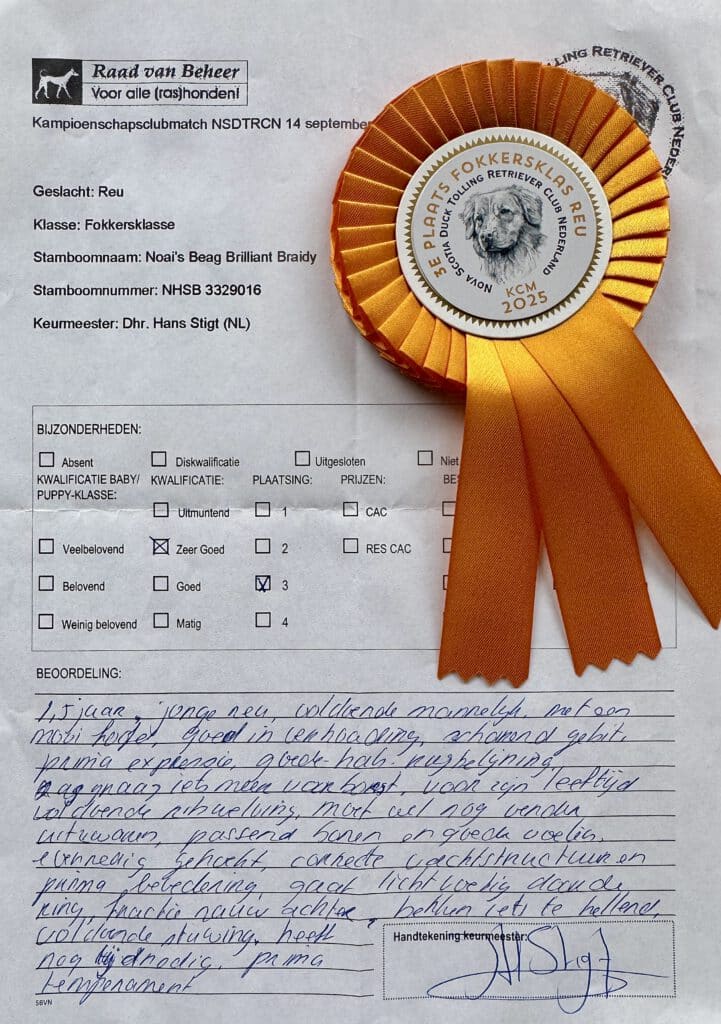 Raad van Beheer
Voor alle (ras)honden!
TOLLING RETRIEVER CLUB NEDER
Kampioenschapsclubmatch NSDTRCN 14 september
Geslacht: Reu
Klasse: Fokkersklasse
Stamboomnaam: Noai's Beag Brilliant Braidy
Stamboomnummer: NHSB 3329016
Keurmeester: Dhr. Hans Stigt (NL)
3E PLAATS FOKKERSKLAS REU
NOVA SCOTIA DUCK TOLLING RETRIEVER CLUB NEDERLAND
KCM
2025
BIJZONDERHEDEN:
Absent Diskwalificatie Uitgesloten Niet
KWALIFICATIE BABY/ KWALIFICATIE: PLAATSING: PRIJZEN: BES
PUPPY-KLASSE:
Uitmuntend 1 CAC
Veelbelovend Zeer Goed 2 RES CAC
Belovend Goed 3
Weinig belovend Matig 4
BEOORDELING:
1,5 jaar, jonge reu, voldoende mannelijk, met een
mooi hoofd, goed in verhouding, scharend gebit,
prima expressie, goede hals- rugbelijning,
mag graag iets meer voorborst, voor zijn leeftijd
voldoende ribwelving, moet wel nog verder
uitzwaren, passend bonen en goede voeten,
evenredig gehoekt, correcte vachtstructuur en
prima bevedering, gaat lichtvoetig door de
ring, fractie nauw achter, bekken iets te hellend,
voldoende stuwing, heeft
nog tijd nodig, prima
temperament
Handtekening keurmeester:
H Stigt
S6VN